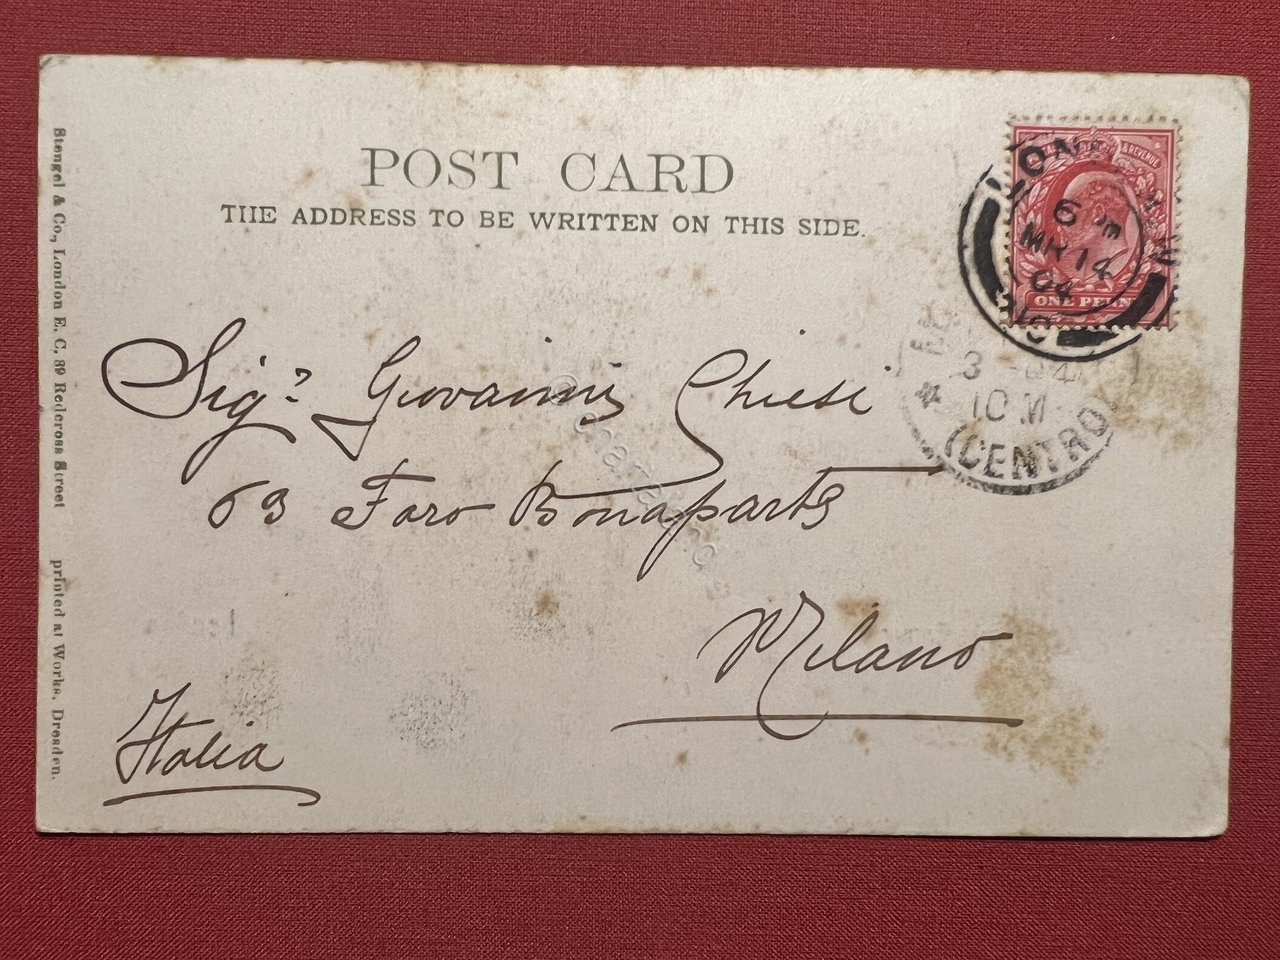 POST CARD
THE ADDRESS TO BE WRITTEN ON THIS SIDE.
Stengel & Co., London E. C. 39 Redcross Street printed at Works, Dresden.
& REVENUE
ONE PENNY
LONDON
6 PM
MR 14
04
3 - 04
10 M
(CENTRO)
Sigr Giovanni Chiesi
63 Foro Bonaparte
Milano
Italia